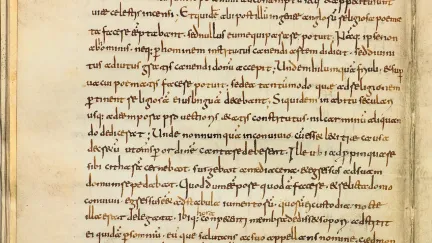 uitae celestis accensi. Et quidem et alii post illum in gente anglorũ religiosa poema
ta facere temptabant, sed nullus eum equiparare potuit. Neq; ipse non
ab hominib; neq; per hominem institutus canendi artem didicit, sed diuini
tus adiutus gratis canendi donũ accepit; Unde nihil umquã friuoli, et sup
uacui poematis facere potuit, sed ea tantũmodo quae ad religionem
pertinent religiosã eius linguã decebant; Siquidem in habitu seculari
usq; ad tempora prouectioris aetatis constitutus, nil carminũ aliquan
do didicerat; Unde nonnumquã in conuiuio, cũ esset laetitiae causa
decretũ ut omnes per ordinẽ cantare deberent. Ille ubi adpropinquare
sibi citharã cernebat, surgebat a media cena, et egressus ad suam
domum repedabat. Quod dum tempore quodã faceret, et relicta domo
conuiuii egressus esset ad stabula iumentorũ, quorũ ei custodia nocte
illa erat delegata, ibiq; hora conpetenti membra dedisset sopori, adstitit
ei quidã p somniũ, eũque salutans ac suo appellans nomine, cedmon